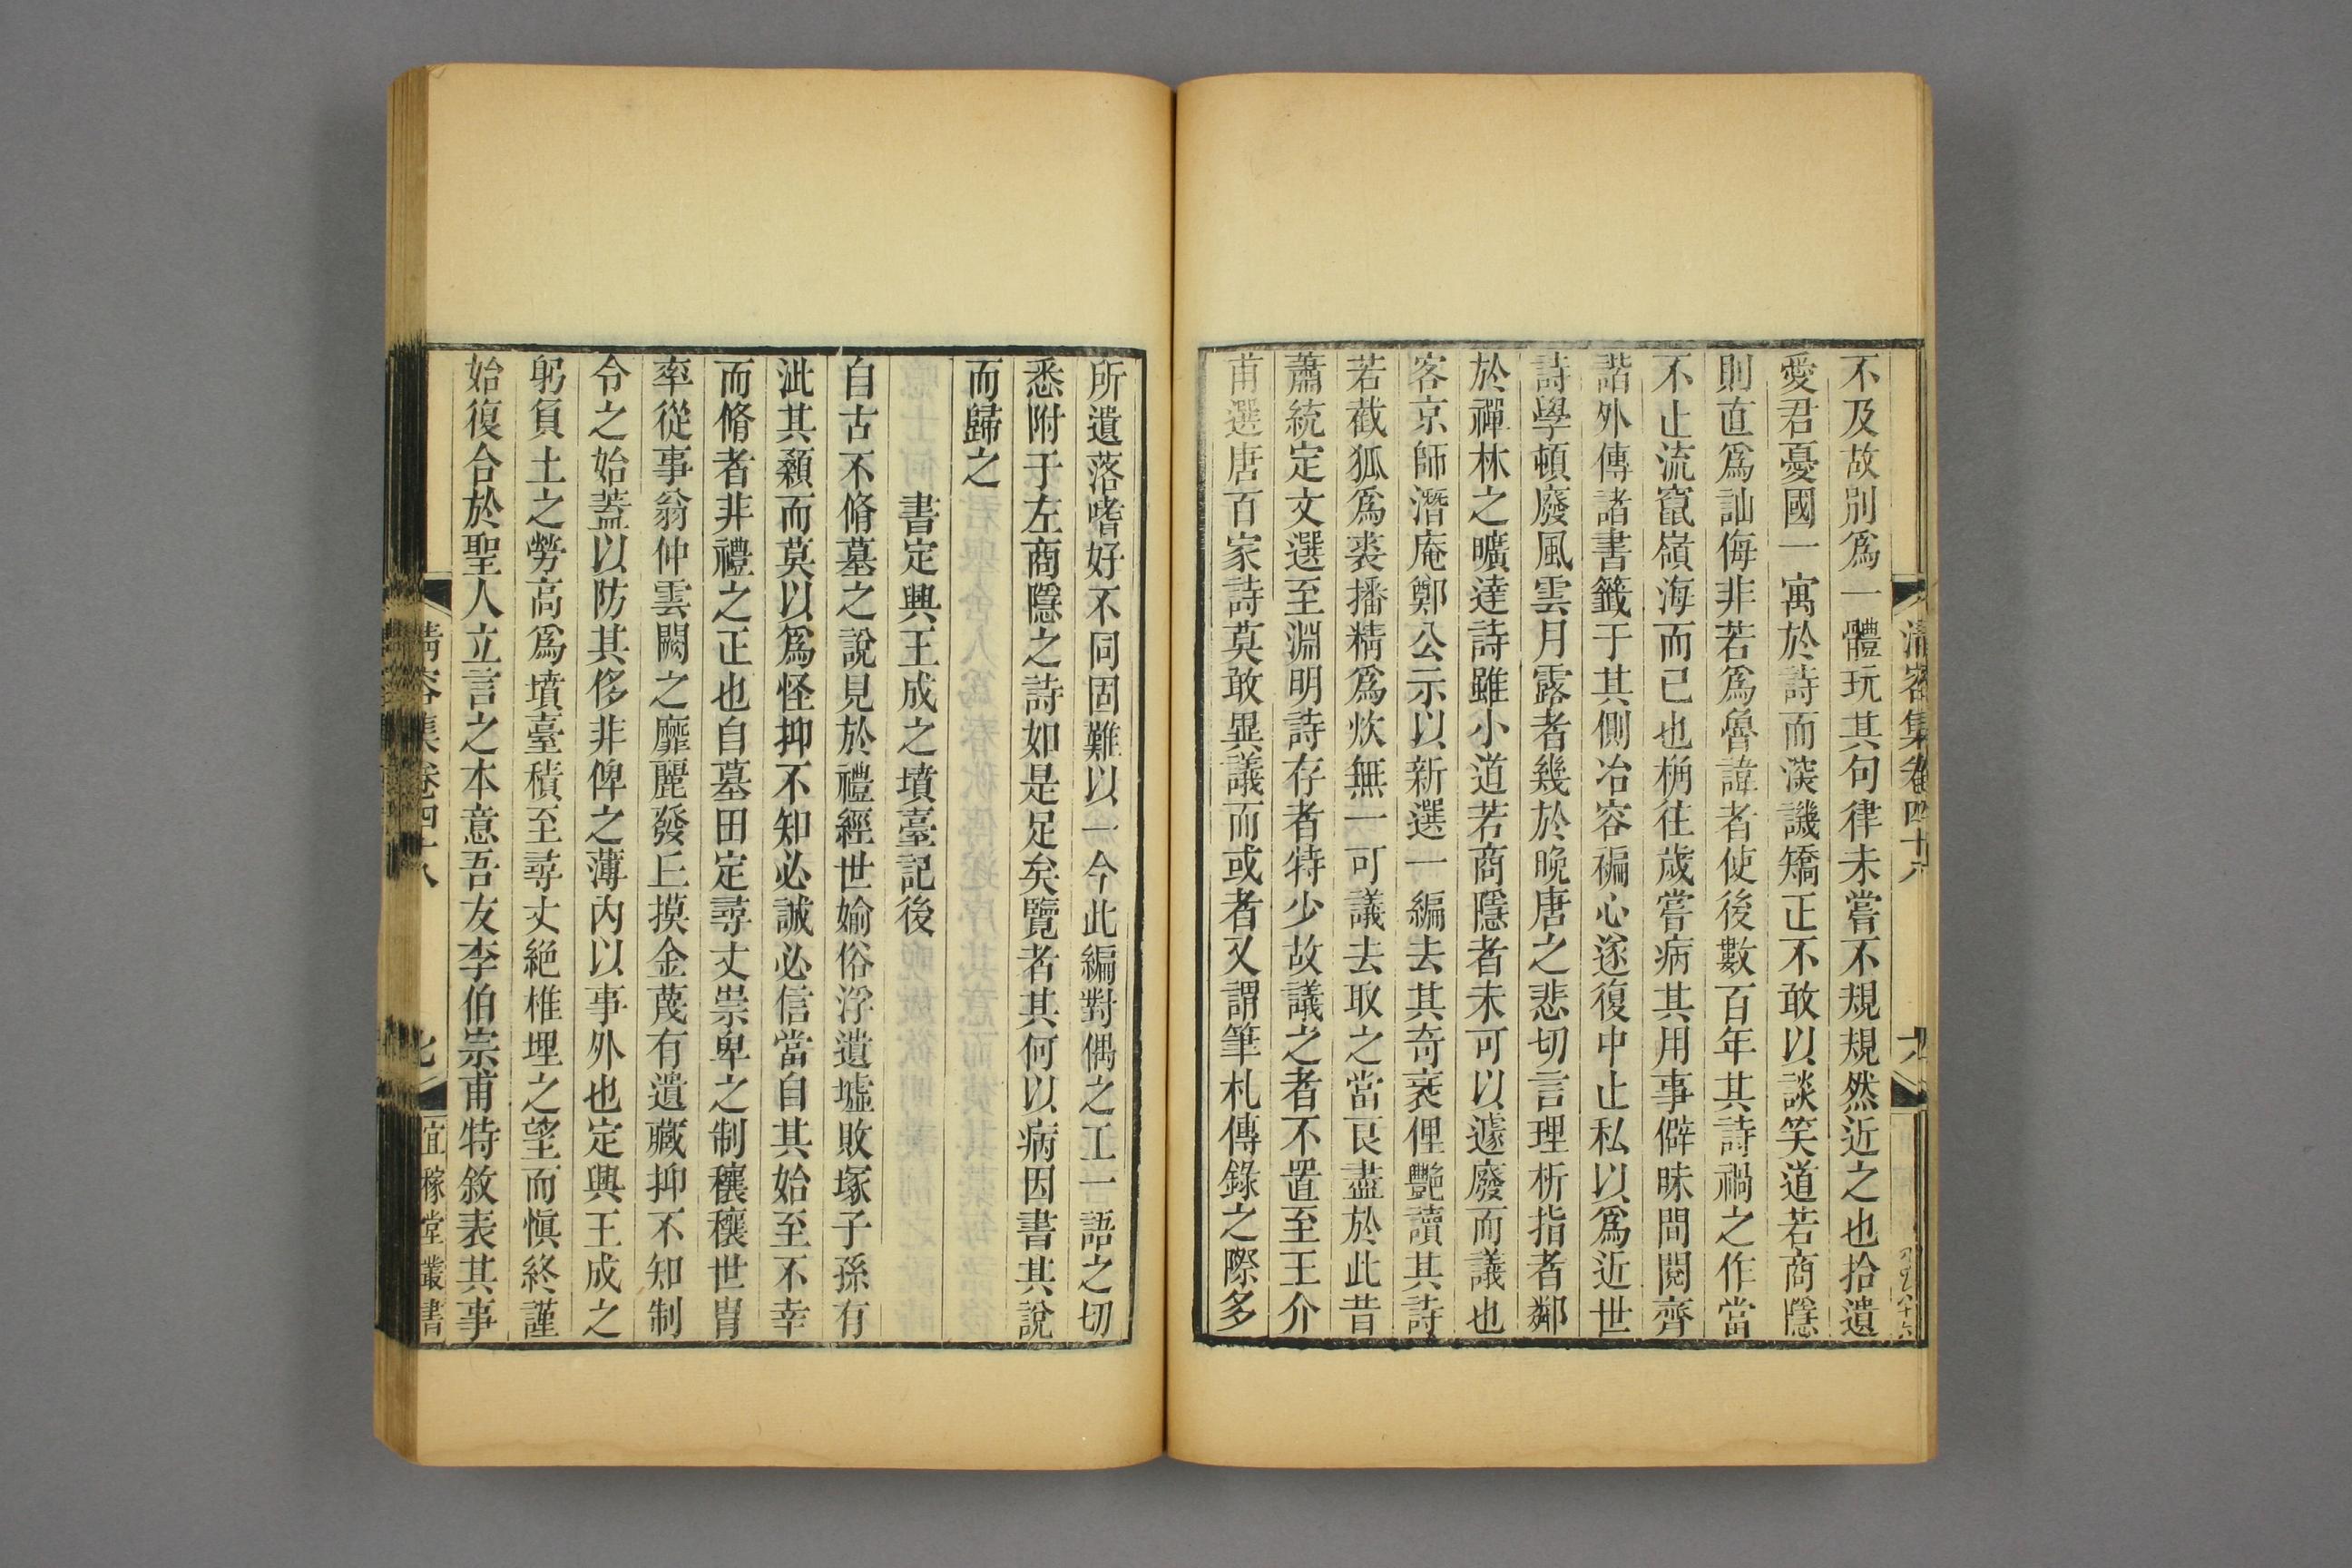 清容集卷四十八
不及故別爲一體玩其句律未嘗不規規然近之也拾遺
愛君憂國一寓於詩而深譏矯正不敢以談笑道若商隱
則直爲訕侮非若爲魯諱者使後數百年其詩禍之作當
不止流竄嶺海而已也桷往歲嘗病其用事僻昧間閱齊
諧外傳諸書籤于其側冶容褊心遂復中止私以爲近世
詩學頓廢風雲月露者幾於晚唐之悲切言理析指者鄰
於禪林之曠達詩雖小道若商隱者未可以遽廢而議也
客京師潛庵鄭公示以新選一編去其奇衺俚艷讀其詩
若截狐爲裘播精爲炊無一可議去取之當良盡於此昔
蕭統定文選至淵明詩存者特少故議之者不置至王介
甫選唐百家詩莫敢異議而或者又謂筆札傳錄之際多
所遺落嗜好不同固難以一今此編對偶之工一語之切
悉附于左商隱之詩如是足矣覽者其何以病因書其說
而歸之
書定興王成之墳臺記後
自古不脩墓之說見於禮經世婾俗浮遺墟敗塚子孫有
泚其顙而莫以爲怪抑不知必誠必信當自其始至不幸
而脩者非禮之正也自墓田定尋丈崇卑之制穰穰世胄
率從事翁仲雲闕之靡麗發丘摸金蔑有遺藏抑不知制
令之始蓋以防其侈非俾之薄內以事外也定興王成之
躬負土之勞高爲墳臺積至尋丈絕椎埋之望而愼終謹
始復合於聖人立言之本意吾友李伯宗甫特敘表其事
清容集卷四十八
宜稼堂叢書